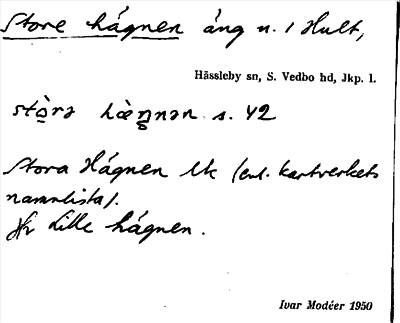 Store hágnen äng n. i Hult,
Hässleby sn, S. Vedbo hd, Jkp. l.
s. 42
Stora Hágnen lk (enl. kartverkets
namnlista).
Jfr Lille hágnen.
Ivar Modéer 1950